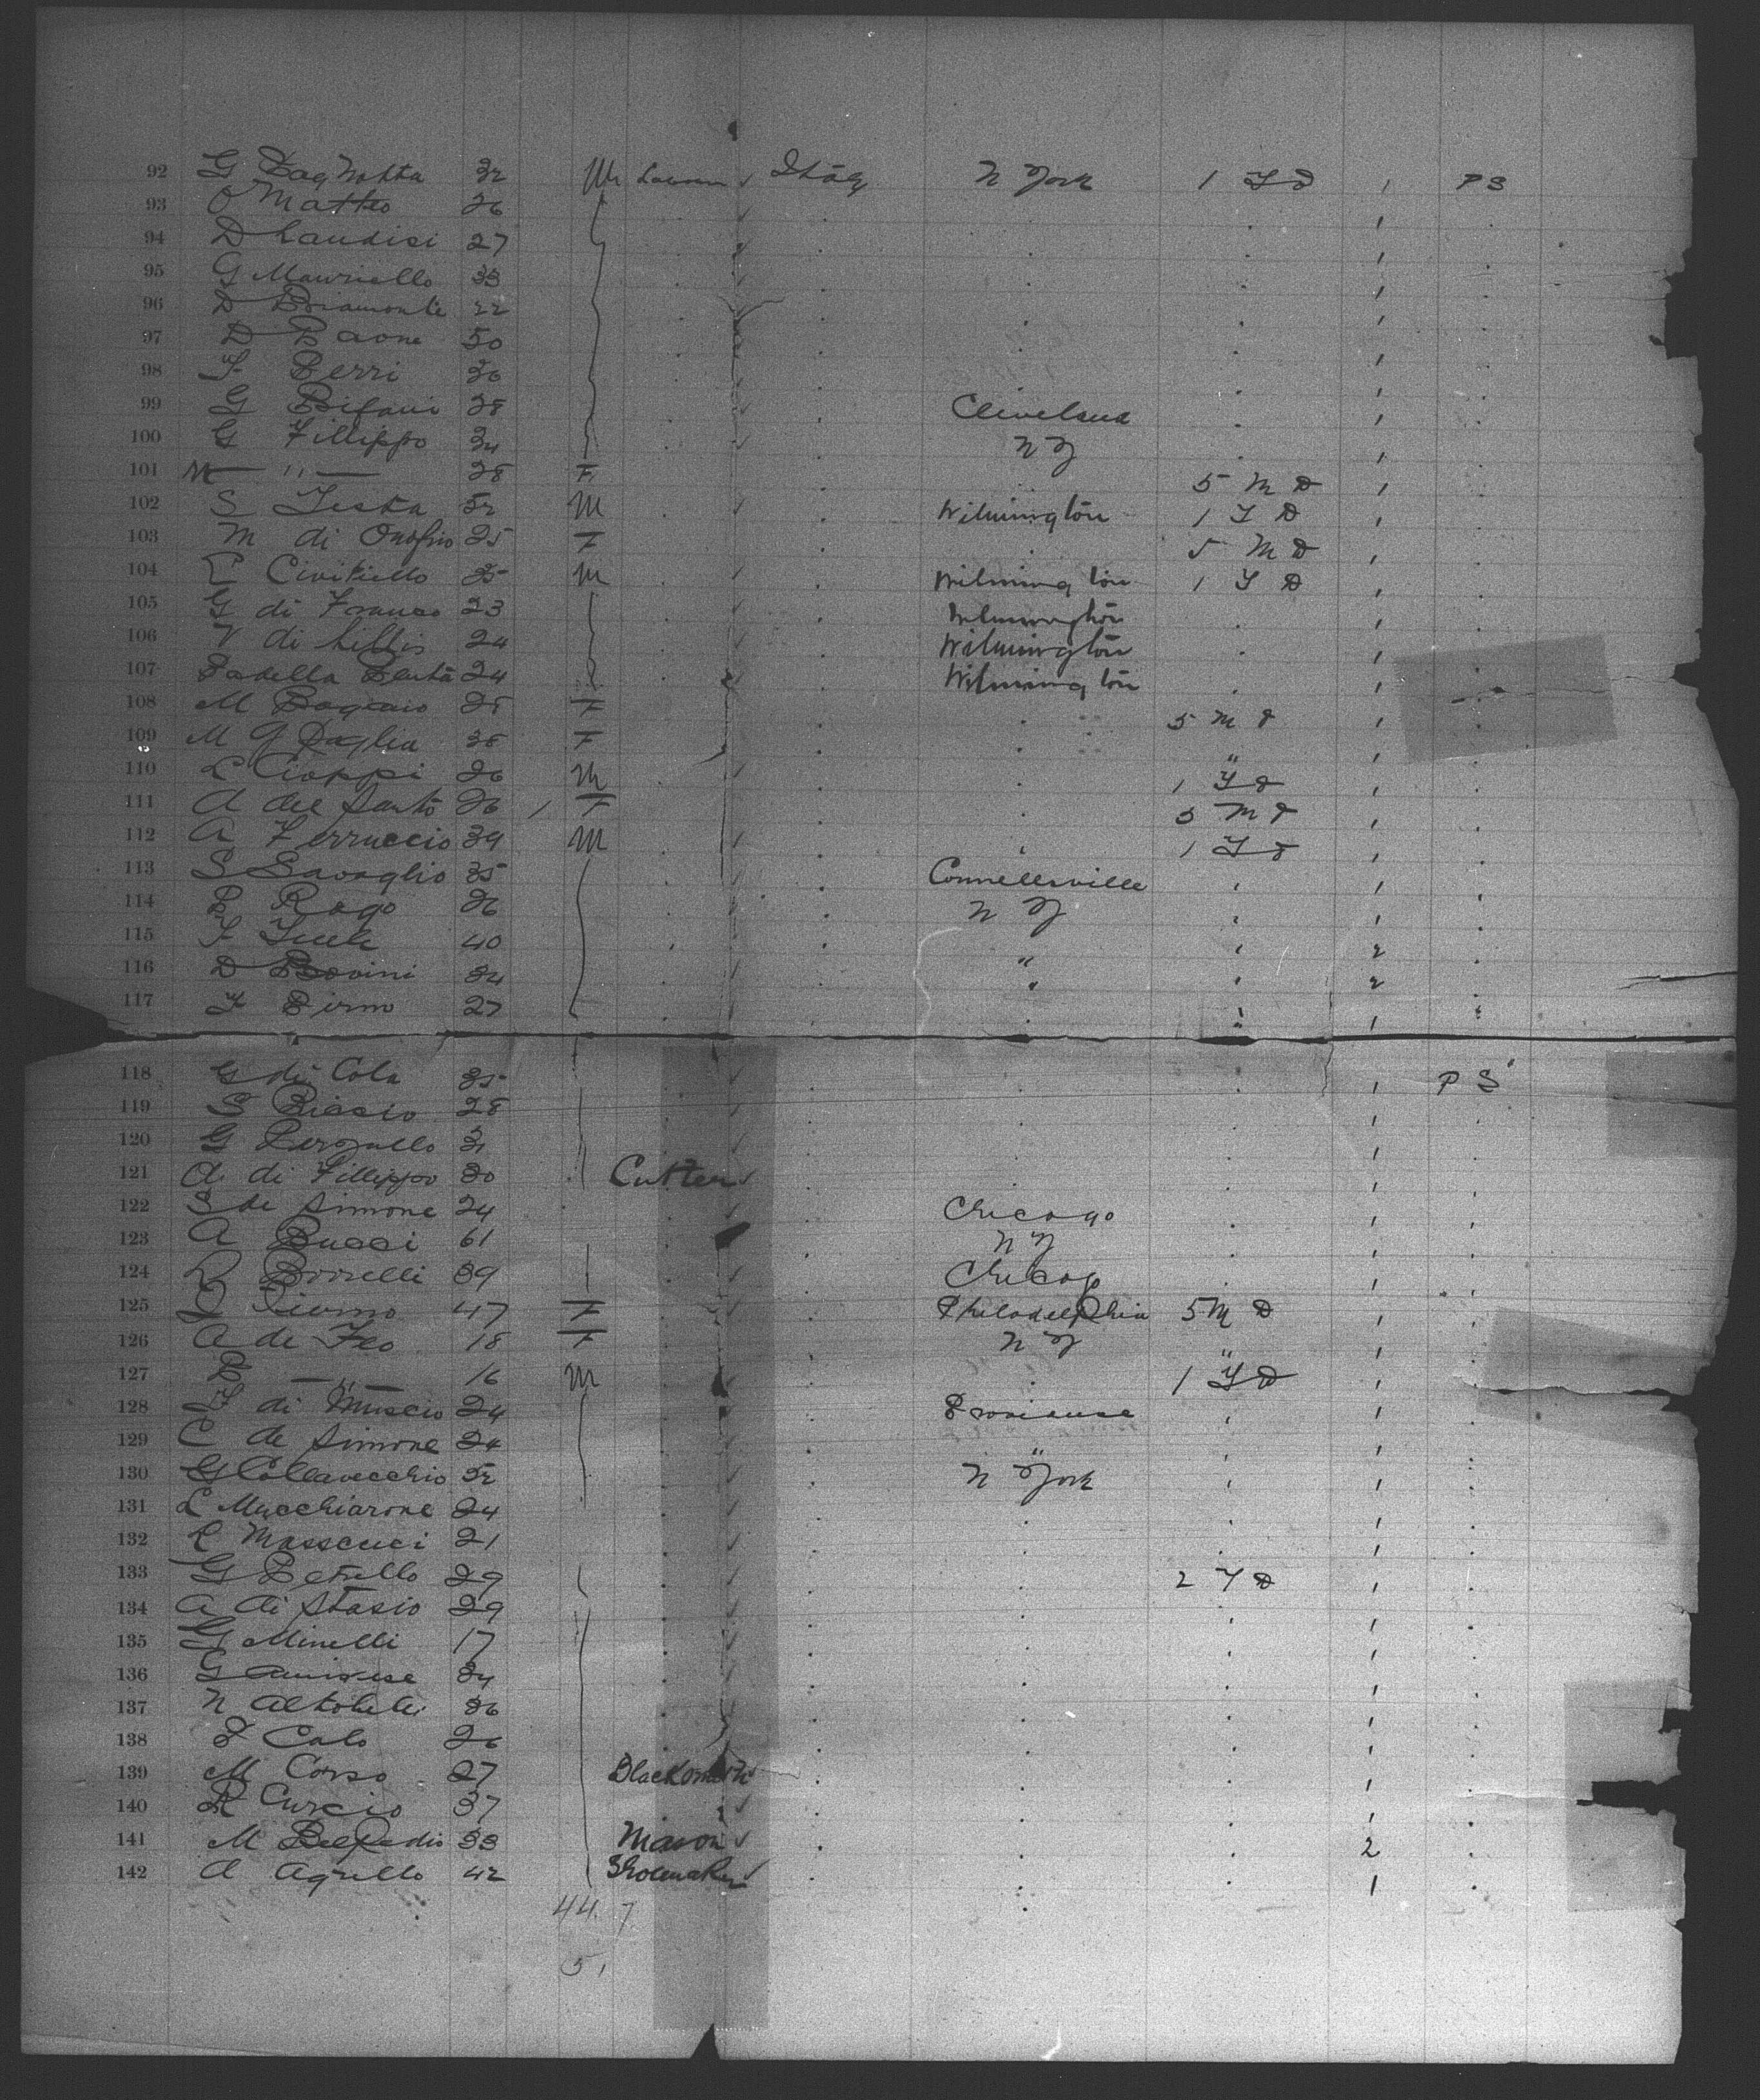 92 G 32 M Italy N York 1 Y D 1 P S
93 O Matteo 26 1
94 D Laudisi 27 1
95 G Mauriello 33 1
96 D Bramonte 22 1
97 D Paone 50 1
98 F Perri 36 1
99 G Bifani 28 Cleveland 1
100 G Fillippo 34 N Y 1
101 M — " — 28 F 5 M D 1
102 S Testa 52 M Wilmington 1 Y D 1
103 M di Onofrio 25 F 5 M D 1
104 Civitiello 35 M Wilmington 1 Y D 1
105 G di Franco 23 Wilmington 1
106 V di Lellis 24 Wilmington 1
107 Padella 24 Wilmington 1
108 M 28 F 5 M D 1
109 M G Paglia 38 F " 1
110 L Cioppi 26 M 1 Y D 1
111 A del Santo 26 1 F 5 M D 1
112 A Ferruccio 39 M 1 Y D 1
113 S Savaglio 35 Connellsville 1
114 P Rago 26 N Y 1
115 F 40 " 2
116 D 34 " 2
117 F Pirno 27 1
118 G di Cola 35 1 P S
119 S Biasio 28 1
120 G 31 1
121 A di Fillippo 30 Cutter 1
122 S de Simone 24 Chicago 1
123 A Bucci 61 N Y 1
124 Borrelli 39 Chicago 1
125 47 F Philadelphia 5 M D 1
126 A de Feo 18 F N Y " 1
127 P — " — 16 M 1 Y D 1
128 F di Muscio 24 Providence 1
129 C de Simone 24 " 1
130 G Collavecchio 32 N York 1
131 L Mucchiarone 24 1
132 R Masscuci 21 1
133 G Petrello 29 2 Y D 1
134 A di Stasio 29 1
135 G Minelli 17 1
136 G 34 1
137 N Altobelli 36 1
138 F Calo 26 1
139 M Corso 27 Blacksmith 1
140 R Curcio 37 1
141 M Belpedio 33 Mason 2
142 A Agrello 42 Shoemaker 1
44 7
51